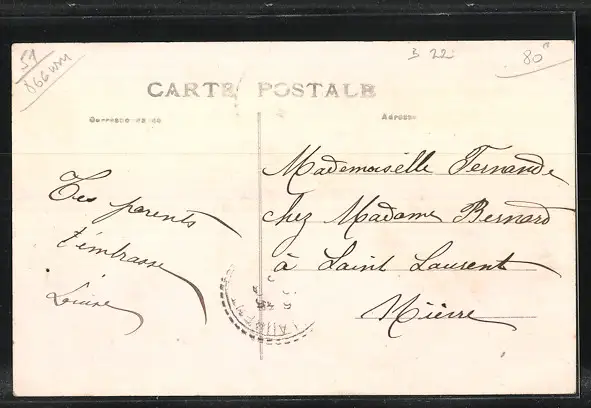 51
866 wm
B 22
80
CARTE POSTALE
Correspondance
Adresse
Tes parents
t'embrasse
Louise
Mademoiselle Fernande
chez Madame Bernard
à Saint Laurent
Nièvre